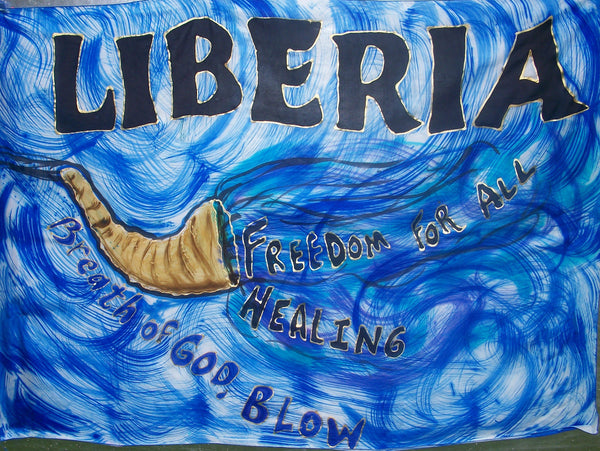 LIBERIA
FREEDOM FOR ALL
HEALING
Breath of GOD, BLOW